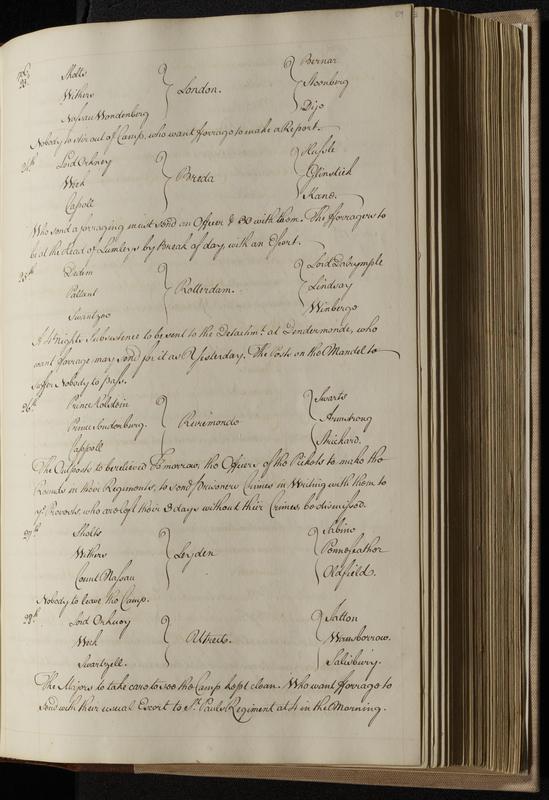 23. Sholts } London. { Bernar
Withers Stoonberg
Nassau Wondenberg Dijo
Nobody to stir out of Camp, who want fforrage to make a Report.
24th Lord Orkney } Breda { Hussle
Week Glinstieh
Cappoll Kano.
Who send a forraging must send an Officer & 30 with them. The fforragers to
be at the head of Lumleys by Break of day with an Escort.
25th Dedem } Rotterdam. { Lord Dalrymple
Pallant Lindsay
Swantzoo Winbergo
A Fortnights Subsistence to be sent to the Detachmt. at Dendermonde, who
want forrage may send for it as Yesterday. The Posts on the Mandel to
suffer Nobody to pass.
26th Prince Holstein } Revremondo { Swarts
Prince Sonderburg. Armstrong
Cappoll Prichard.
The Outposts to be relieved Tomorrow, the Officers of the Pickets to make the
Rounds in their Regiments, to send Prisoners Crimes in Writing with them to
ye. Provosts, who are left their 3 days without their Crimes, be dismissed.
27th Sholts } Leyden { Sabino
Withers Pennefeather
Count Nassau Oldfield.
Nobody to leave the Camp.
28th Lord Orkney } Utrecht. { Sutton
Week Wansborrow.
Swartzell. Salisbury.
The Majors to take care to see the Camp kept clean. Who want fforrage to
send with their usual Escort to St. Pauls Regiment at 4 in the Morning.